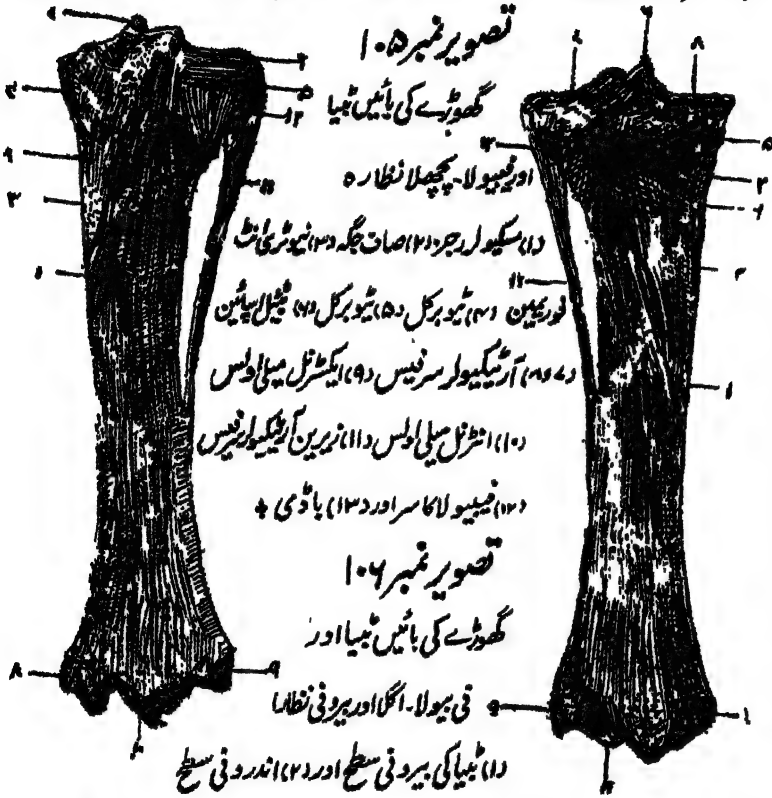 تصویر نمبر ۱۰۵
گھوڑے کی بائیں ٹبیا
اور فیبیولا۔ پچھلا نظارہ
(۱) مسکیولر رجز (۲) صاف جگہ (۳) نیوٹری انٹ
فوریمین (۴) ٹیوبرکل (۵) ٹیوبرکل (۶) ٹبیل سپائین
(۷ و ۸) آرٹیکیولر سرفیس (۹) ایکسٹرنل میلی اولس
(۱۰) انٹرنل میلی اولس (۱۱) زیرین آرٹیکیولر سرفیس
(۱۲) فیبیولا کا سر اور (۱۳) باڈی +
تصویر نمبر ۱۰۶
گھوڑے کی بائیں ٹبیا اور
فی بیولا۔ اگلا اور بیرونی نظارا
(۱) ٹبیا کی بیرونی سطح اور (۲) اندرونی سطح